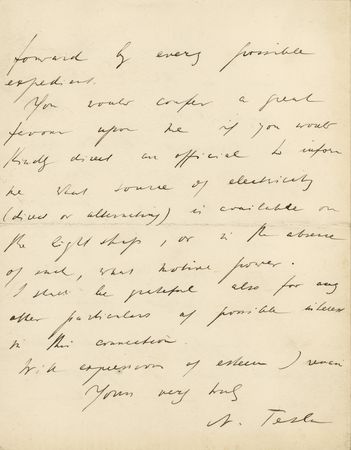 forward by every possible
expedient.
You would confer a great
favour upon me if you would
kindly direct an official to inform
me what source of electricity
(direct or alternating) is available on
the light ships, or in the absence
of such, what motive power.
I shall be grateful also for any
other particulars of possible interest
in this connection.
With expression of esteem I remain
Yours very truly
N. Tesla